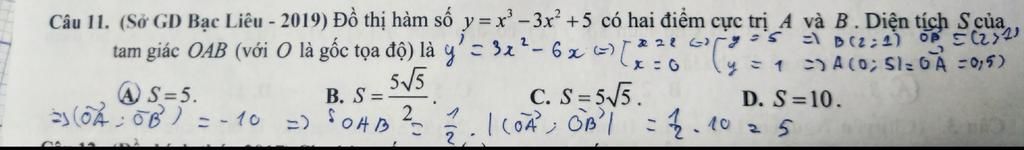 Câu 11. (Sở GD Bạc Liêu - 2019) Đồ thị hàm số y = x³ - 3x² + 5 có hai điểm cực trị A và B. Diện tích S của
tam giác OAB (với O là gốc tọa độ) là y' = 3x² - 6x (=) [x = 2 x = 0 (=) [y = 5 y = 1 => B(2; 1) OB = (2; 1) => A(0; 5) = OA = 0; 5)
A S = 5. B. S = 5√5/2. C. S = 5√5. D. S = 10.
=> (OA ; OB) = -10 => SOAB = 1/2 . |(OA ; OB)| = 1/2 . 10 = 5